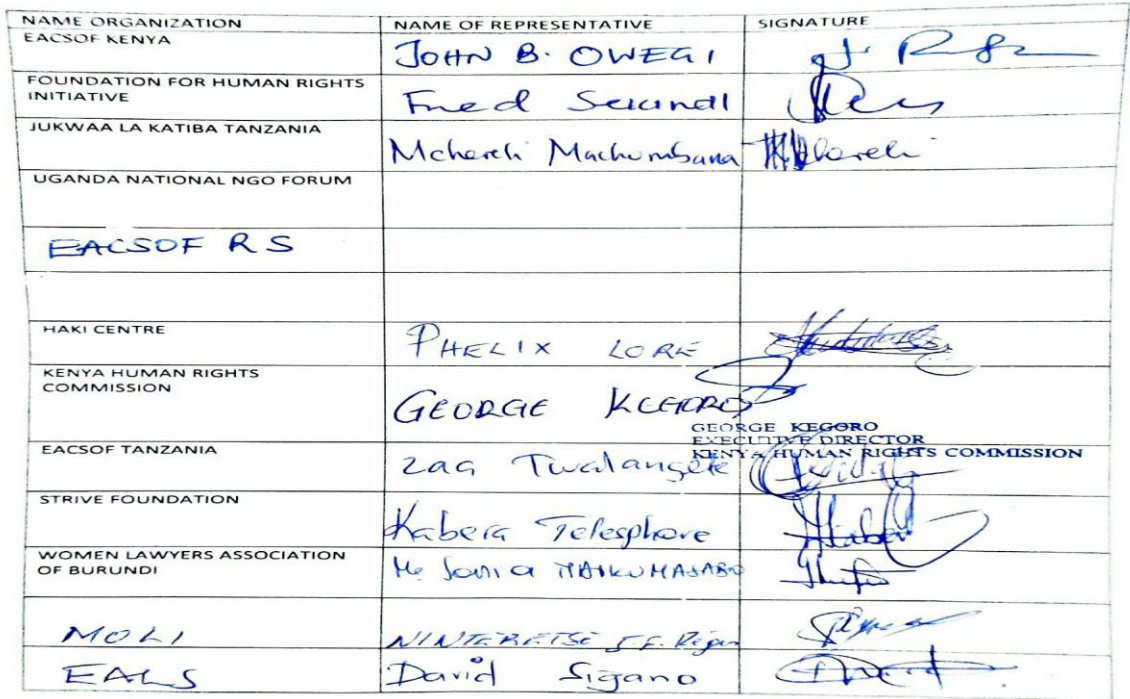 NAME ORGANIZATION NAME OF REPRESENTATIVE SIGNATURE
EACSOF KENYA JOHN B. OWEGI
FOUNDATION FOR HUMAN RIGHTS
INITIATIVE Fred
JUKWAA LA KATIBA TANZANIA
UGANDA NATIONAL NGO FORUM
EACSOF RS
HAKI CENTRE PHELIX LORE
KENYA HUMAN RIGHTS
COMMISSION GEORGE KEGORO
GEORGE KEGORO
EXECUTIVE DIRECTOR
KENYA HUMAN RIGHTS COMMISSION
EACSOF TANZANIA Zaa Twalangete
STRIVE FOUNDATION Kabera Telesphore
WOMEN LAWYERS ASSOCIATION
OF BURUNDI Me Sonia
MOLI NINTERETSE
EALS David Sigano